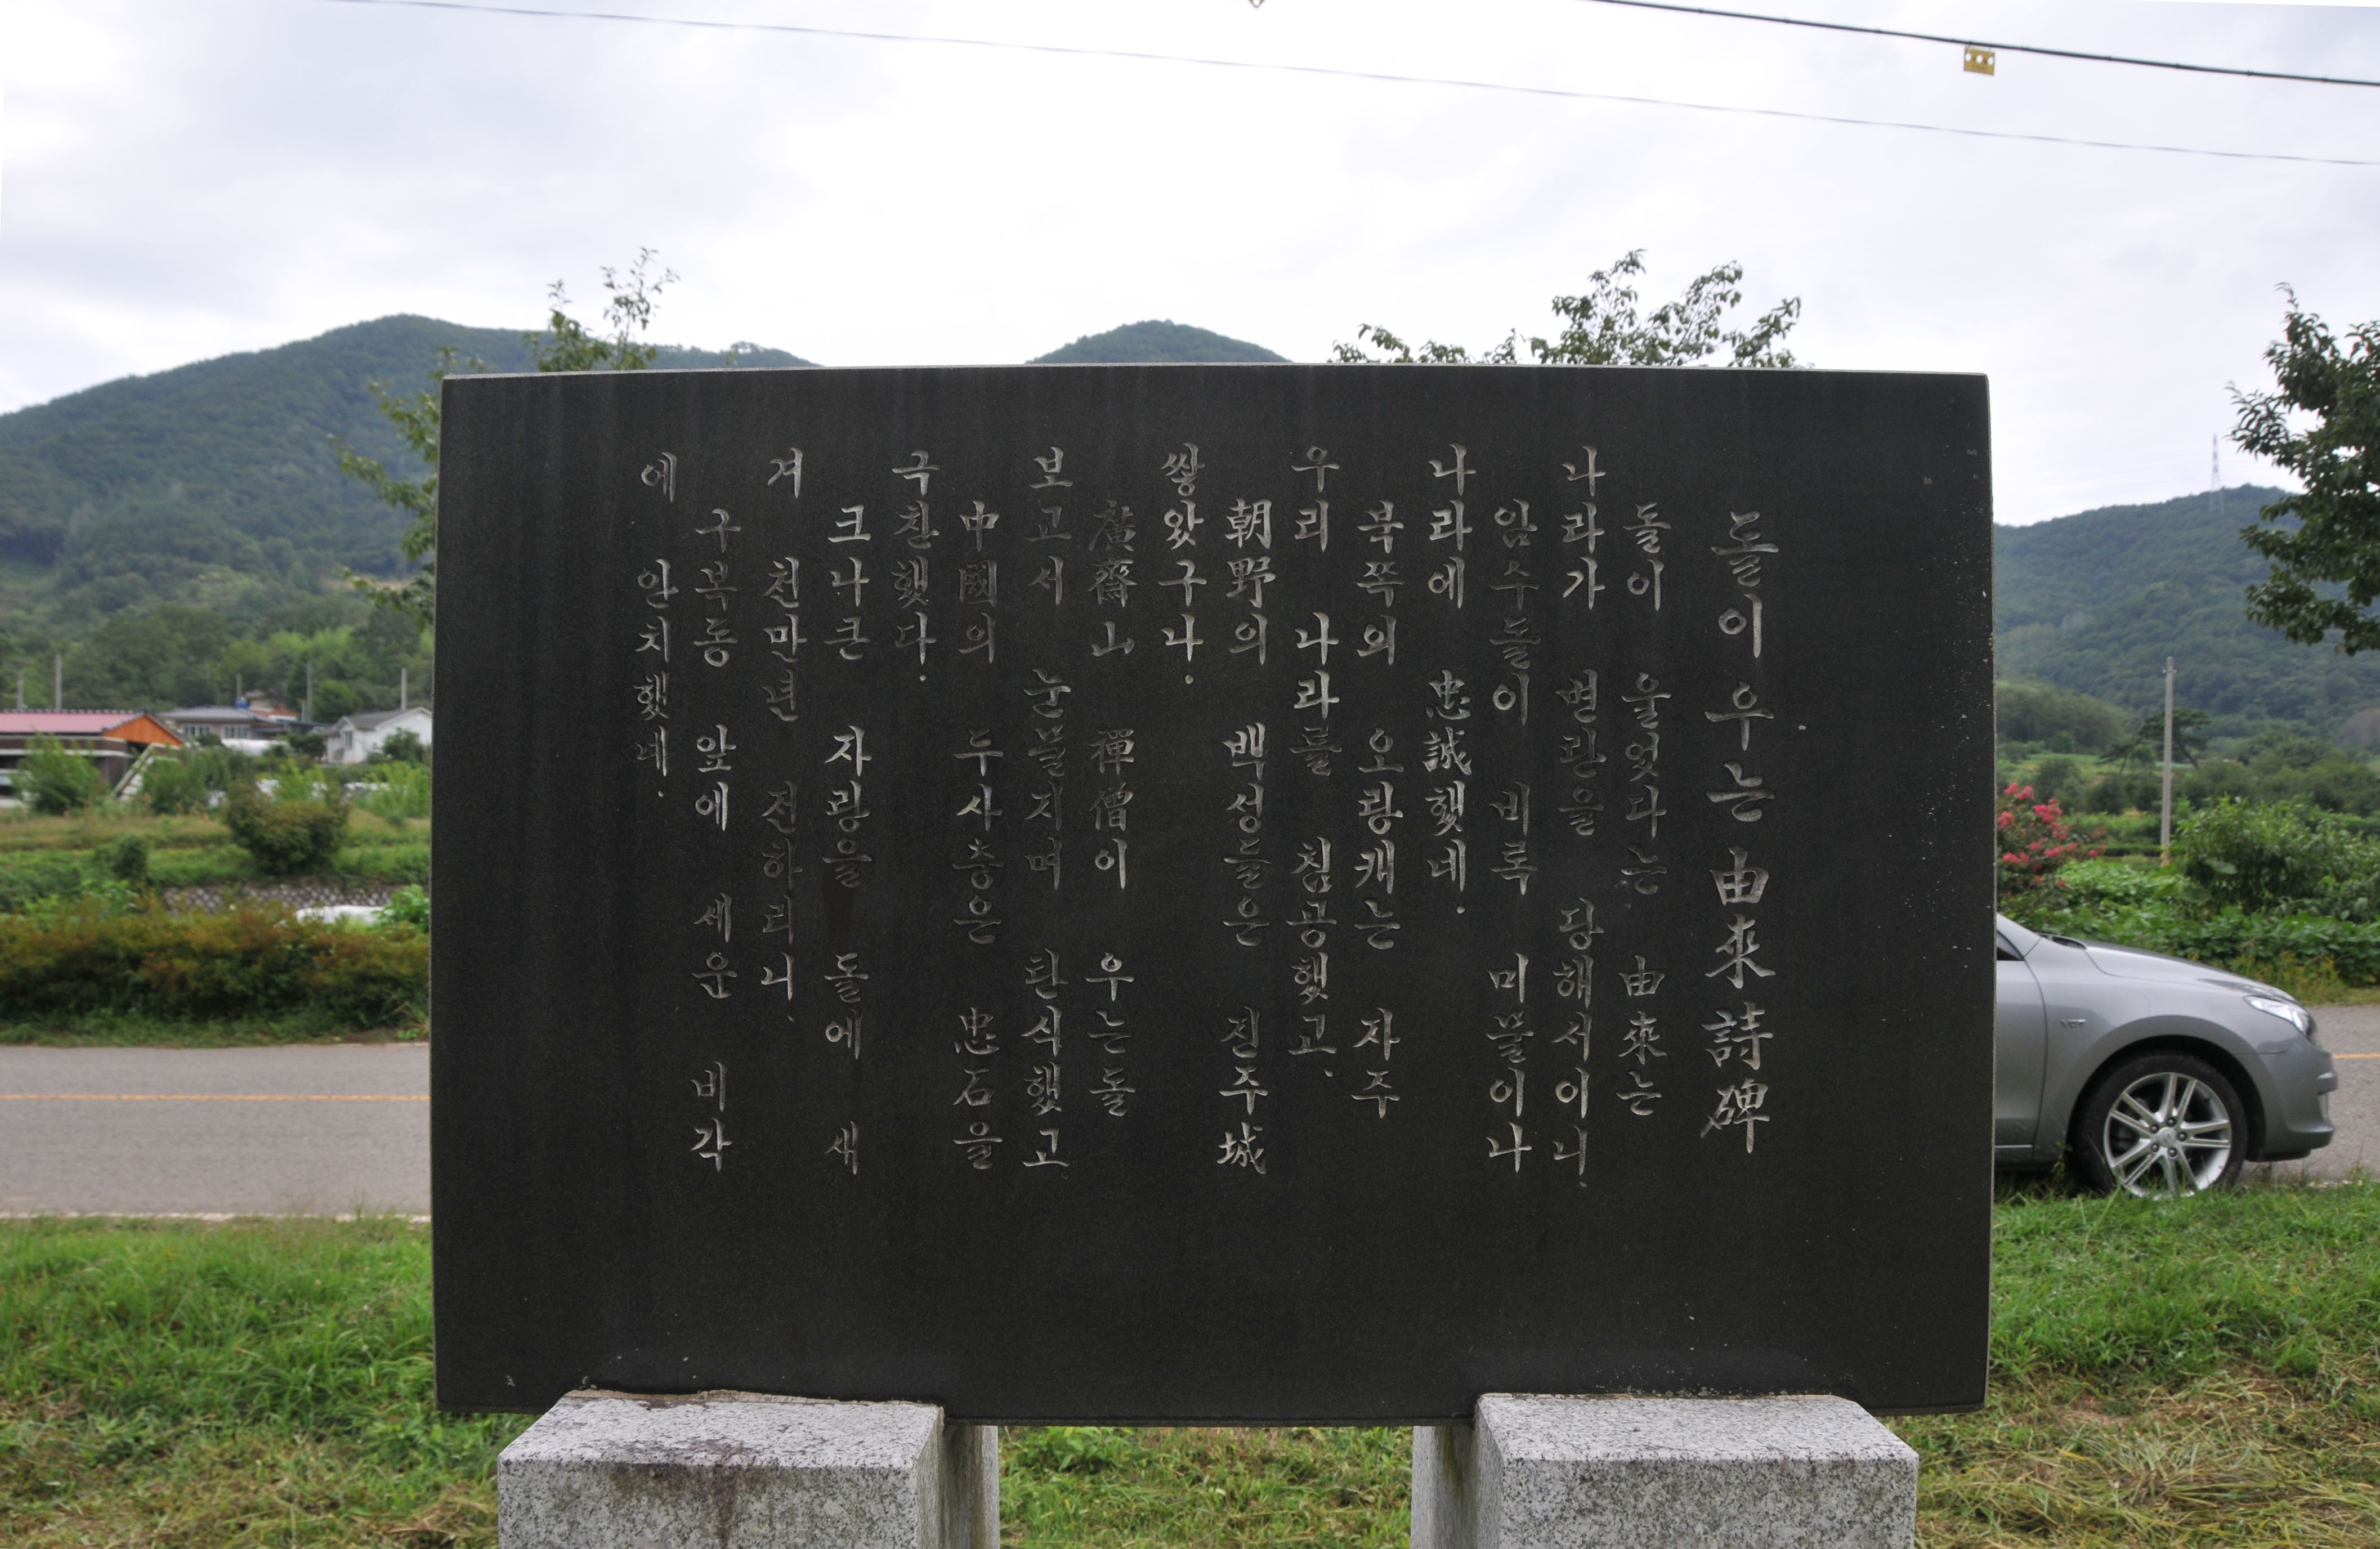 돌이 우는 由來 詩碑
돌이 울었다는 由來는
나라가 변란을 당해서이니.
암수돌이 비록 미물이나
나라에 忠誠했네.
북쪽의 오랑캐는 자주
우리 나라를 침공했고.
朝野의 백성들은 진주城
쌓았구나.
廣齋山 禪僧이 우는돌
보고서 눈물지며 탄식했고
中國의 두사충은 忠石을
극찬했다.
크나큰 자랑을 돌에 새
겨 천만년 전하리니.
구복동 앞에 세운 비각
에 안치했네.